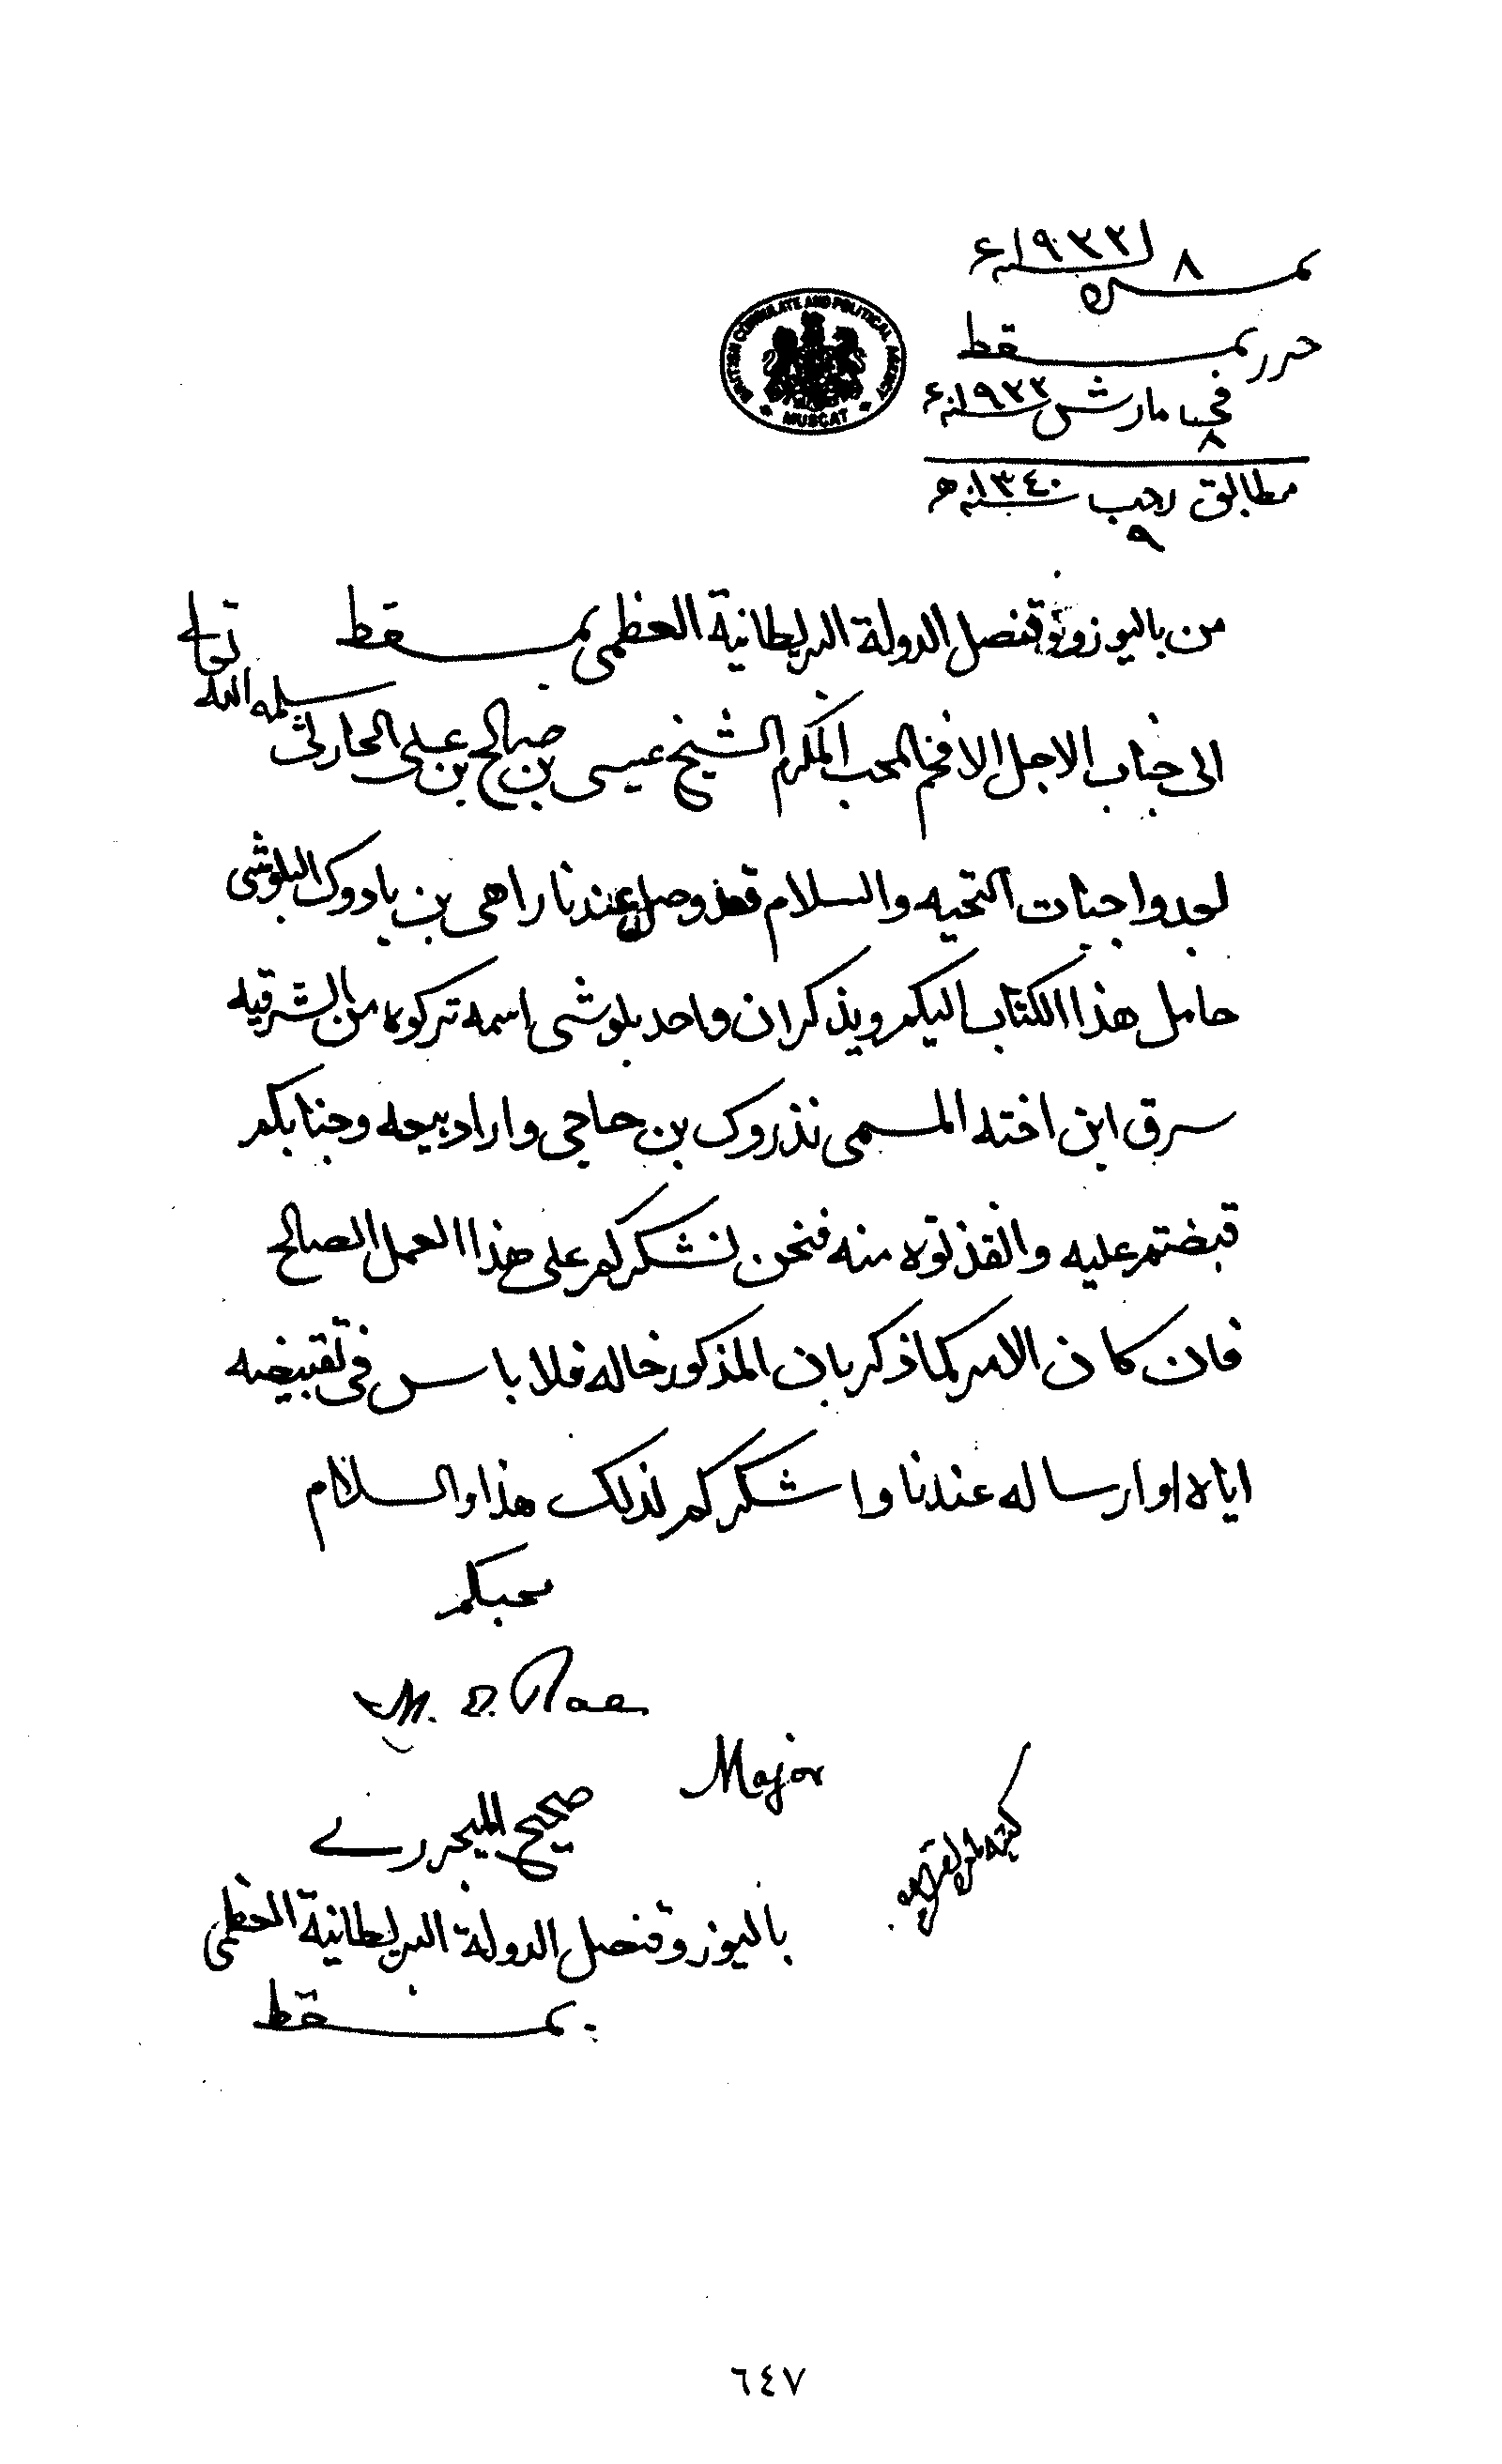 نمبر ٨ سنه ١٩٢٢ء
BRITISH CONSULATE AND POLITICAL AGENCY
MUSCAT
حرر بمسقط
في ٨ مارش سنه ١٩٢٢ء
مطابق ٩ رجب سنه ١٣٤٠ه
من باليوز وقنصل الدولة البريطانية العظمى بمسقط
الى جناب الاجل الافخم المحب المكرم الشيخ عيسى بن صالح بن علي الحارثي سلمه الله تعالى
بعد واجبات التحيه والسلام قد وصل عندنا راهى بن بادوك البلوشى
حامل هذا الكتاب اليكم ويذكر ان واحد بلوشى اسمه تركوه من الشرقيه
سرق ابن اخته المسمى نذروك بن حاجى واراد بيعه وجنابكم
قبضتم عليه وانقذتوه منه فنحن نشكركم على هذا العمل الصالح
فان كان الامر كما ذكر بان المذكور خاله فلا باس فى تقبيضه
اياه او ارساله عندنا واشكركم لذلك هذا والسلام
محبكم
M. E. Rae
Major
صحيح الميجر رے
باليوز وقنصل الدولة البريطانية العظمى
بمسقط
٦٤٧